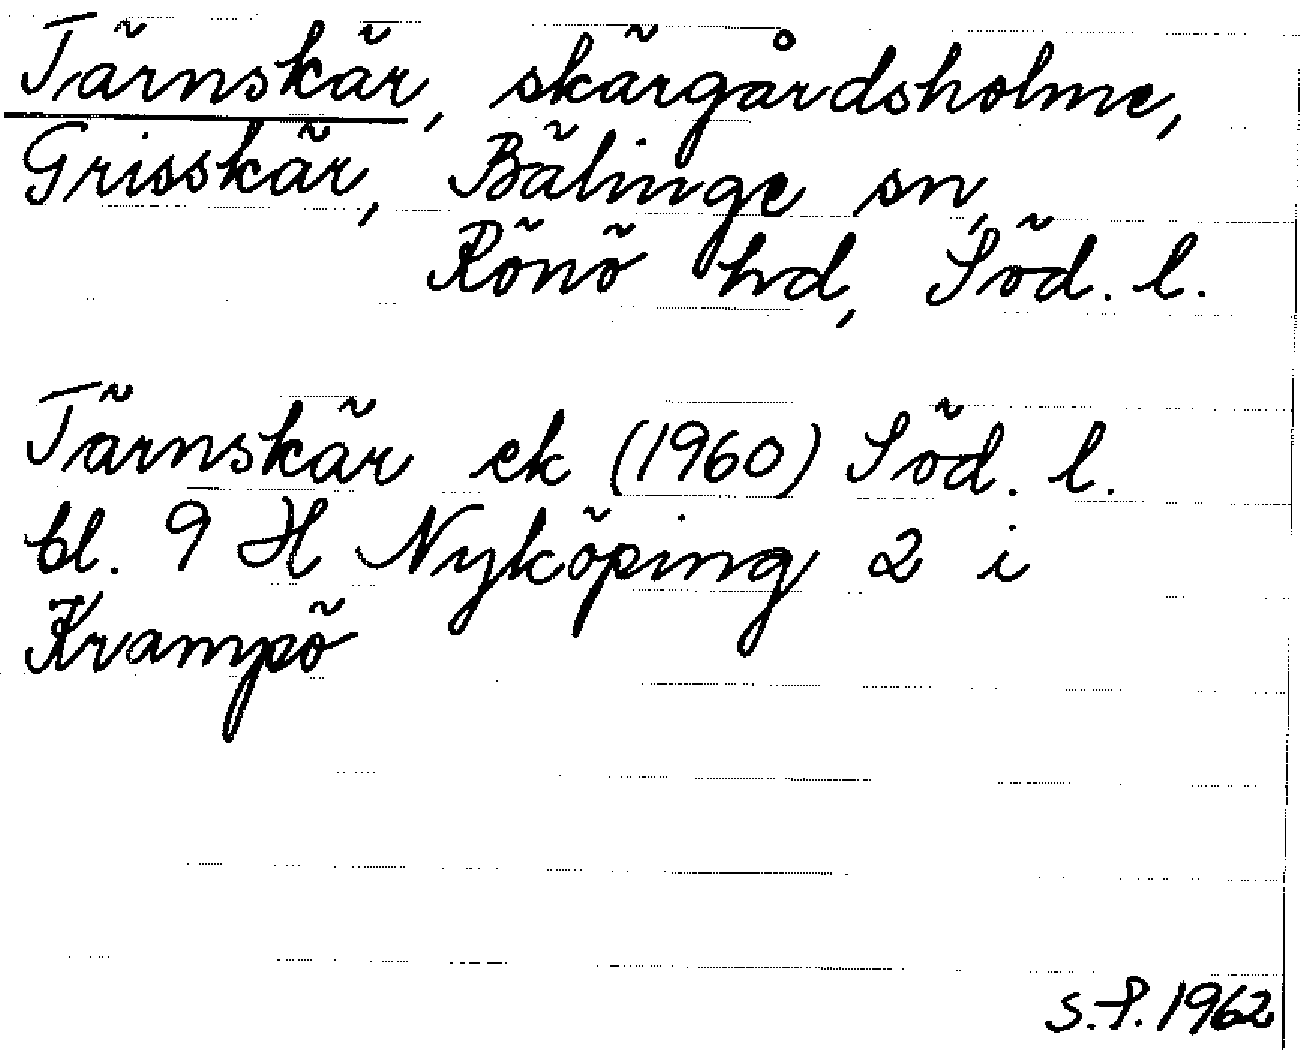 Tärnskär, skärgårdsholme,
Grisskär, Bälinge sn,
Rönö hd, Söd. l.
Tärnskär ek (1960) Söd. l.
bl. 9 H Nyköping 2 i
Krampö
S.P. 1962